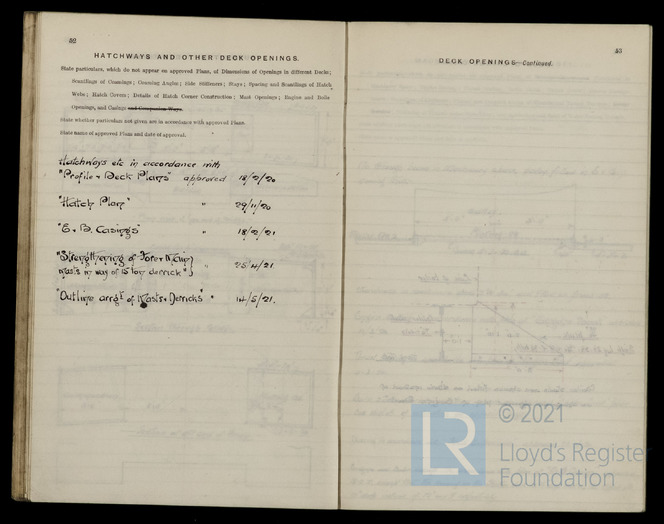 52
HATCHWAYS AND OTHER DECK OPENINGS.
State particulars, which do not appear on approved Plans, of Dimensions of Openings in different Decks;
Scantlings of Coamings; Coaming Angles; Side stiffeners; Stays; Spacing and Scantlings of Hatch
Webs; Hatch Covers; Details of Hatch Corner Construction; Mast Openings; Engine and Boiler
Openings, and Casings and Companion Ways.
State whether particulars not given are in accordance with approved Plans.
State name of approved Plans and date of approval.
Hatchways etc in accordance with
"Profile & Deck Plans" approved 18/2/20
"Hatch Plan" " 29/11/20
"E & B. Casings" " 18/2/21
"Strengthening of Fore & Main
Masts in way of 15 ton derrick" } " 25/4/21.
"Outline arrgt of Masts & Derricks" " 14/5/21.
53
DECK OPENINGS—Continued.
LR
© 2021
Lloyd's Register
Foundation